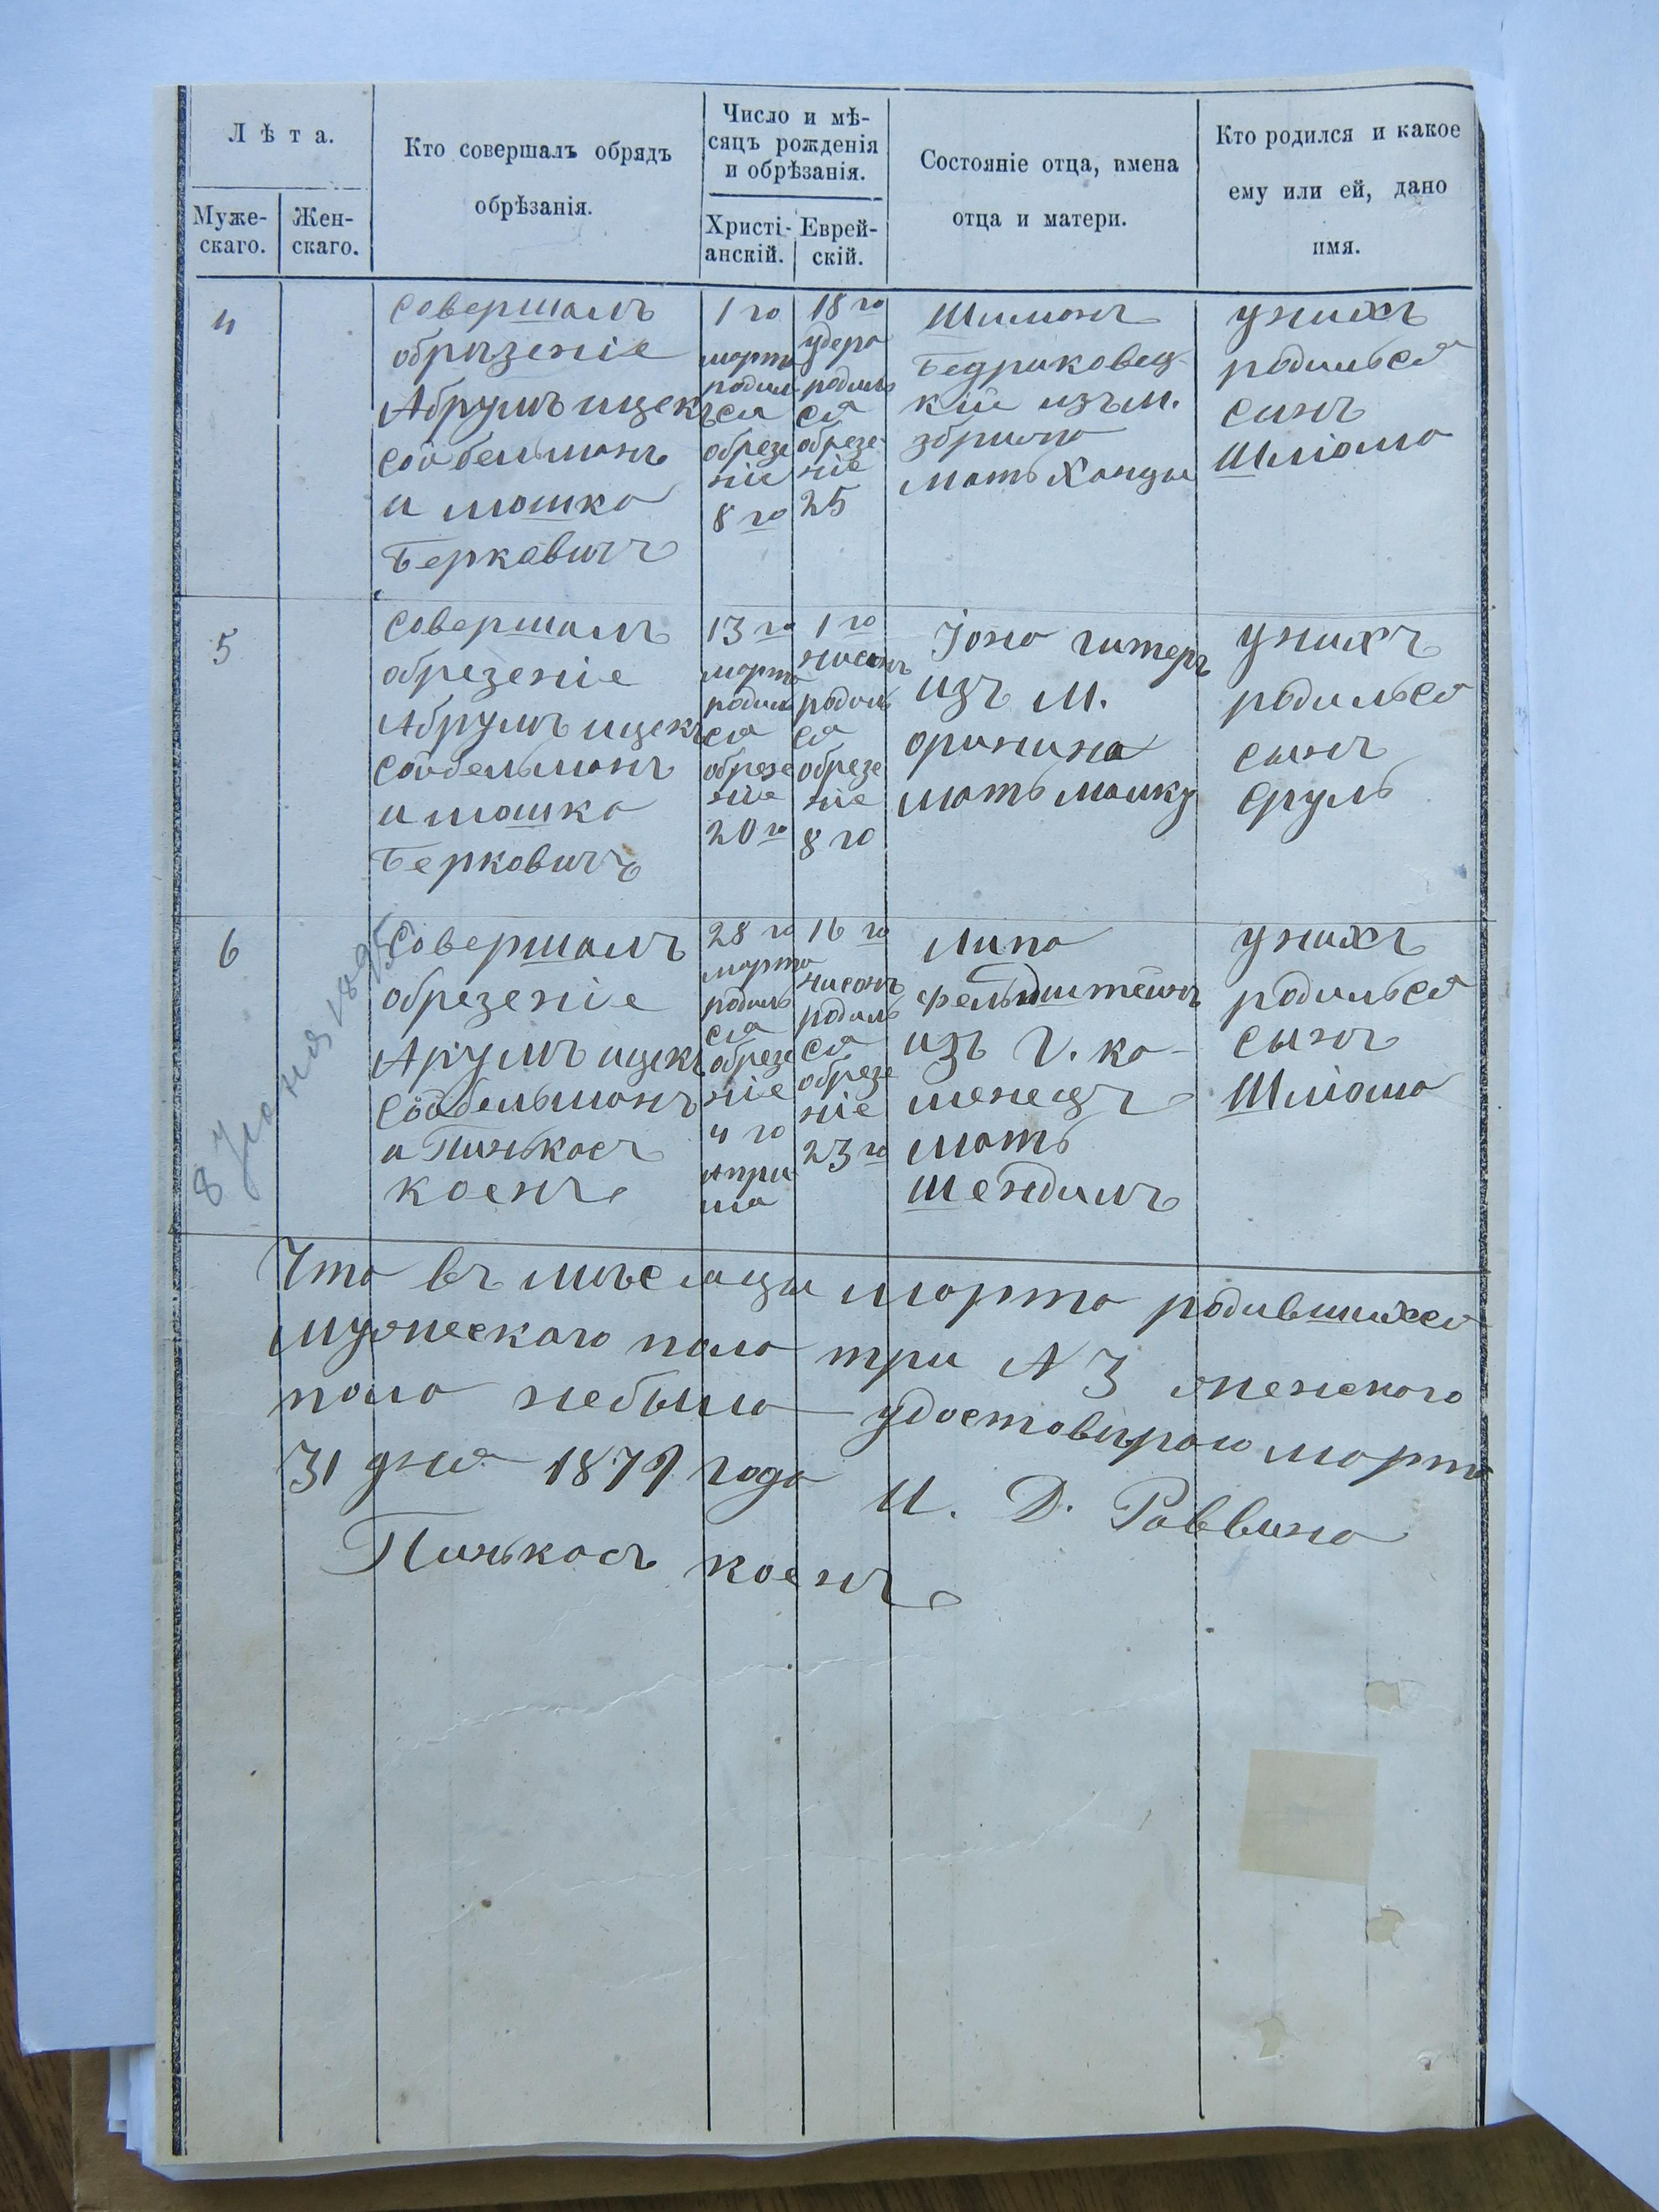 Лѣта.
Муже-
скаго.
Жен-
скаго.
Кто совершалъ обрядъ
обрѣзанія.
Число и мѣ-
сяцъ рожденія
и обрѣзанія.
Христі-
анскій.
Еврей-
скій.
Состояніе отца, имена
отца и матери.
Кто родился и какое
ему или ей, дано
имя.
4
Совершалъ
обрѣзеніе
Абрумъ ицекъ
Сойбельманъ
и мошко
Берковичъ
1 го
марта
родил
ся
обрезе
ніе
8 го
18 го
удера
родиль
ся
обрезе
ніе
25
Шимонъ
Бедриковец-
кій изъ м.
збрижа
мать Ханци
у нихъ
родилься
синъ
Шліома
5
Совершалъ
обрезеніе
Абрумъ ицекъ
Сойбельманъ
и мошко
Берковичъ
13 го
марта
родил
ся
обрезе
ніе
20 го
1 го
нисонъ
родиль
ся
обрезе
ніе
8 го
Іоно гитеръ
изъ м.
оринина
мать малку
у нихъ
родилься
сынъ
Сруль
6
Совершалъ
обрезеніе
Арумъ ицекъ
Сойбельманъ
и Пинькосъ
коенъ
28 го
марта
родиль
ся
обрезе
ніе
4 го
Апри
ла
16 го
нисонъ
родиль
ся
обрезе
ніе
23 го
Липа
Фельдштейнъ
изъ г. ка-
менецъ
мать
Шендиль
у нихъ
родилься
сынъ
Шліома
8 Іюня 1895
Что въ мѣсяци марта родившихся
мужескаго пола три N 3 женскаго
пола небыло удостовіраю марта
31 дня 1879 года И. Д. Раввина
Пинькосъ коенъ